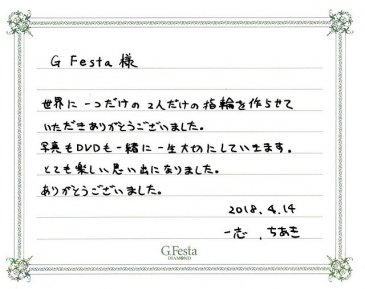 G Festa 様
世界に一つだけの2人だけの指輪を作らせて
いただきありがとうございました。
写真もDVDも一緒に一生大切にしていきます。
とても楽しい思い出になりました。
ありがとうございました。
2018.4.14
一志、ちあき
G.Festa
DIAMOND